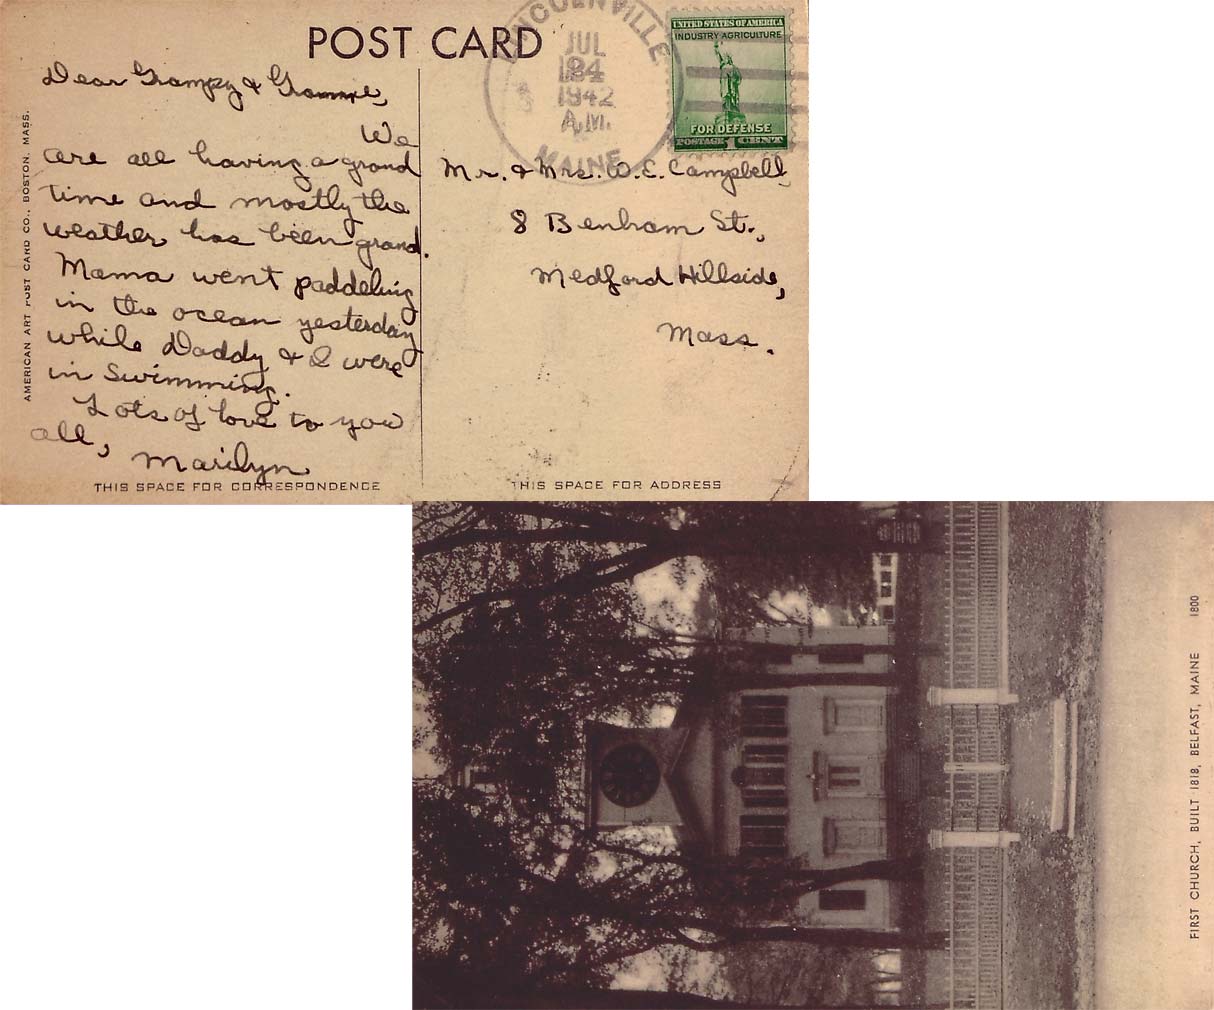 POST CARD
LINCOLNVILLE
JUL
1942
A.M.
MAINE
UNITED STATES OF AMERICA
INDUSTRY AGRICULTURE
FOR DEFENSE
POSTAGE 1 CENT
Dear Grampy & Gramme,
We
are all having a grand
time and mostly the
weather has been grand.
Mama went paddeling
in the ocean yesterday
while Daddy & I were
in swimming.
Lots of love to you
all,
Marilyn
Mr. & Mrs. W. E. Campbell,
8 Benham St.,
Medford Hillside,
Mass.
AMERICAN ART POST CARD CO., BOSTON, MASS.
THIS SPACE FOR CORRESPONDENCE
THIS SPACE FOR ADDRESS
FIRST CHURCH, BUILT 1818, BELFAST, MAINE 1800